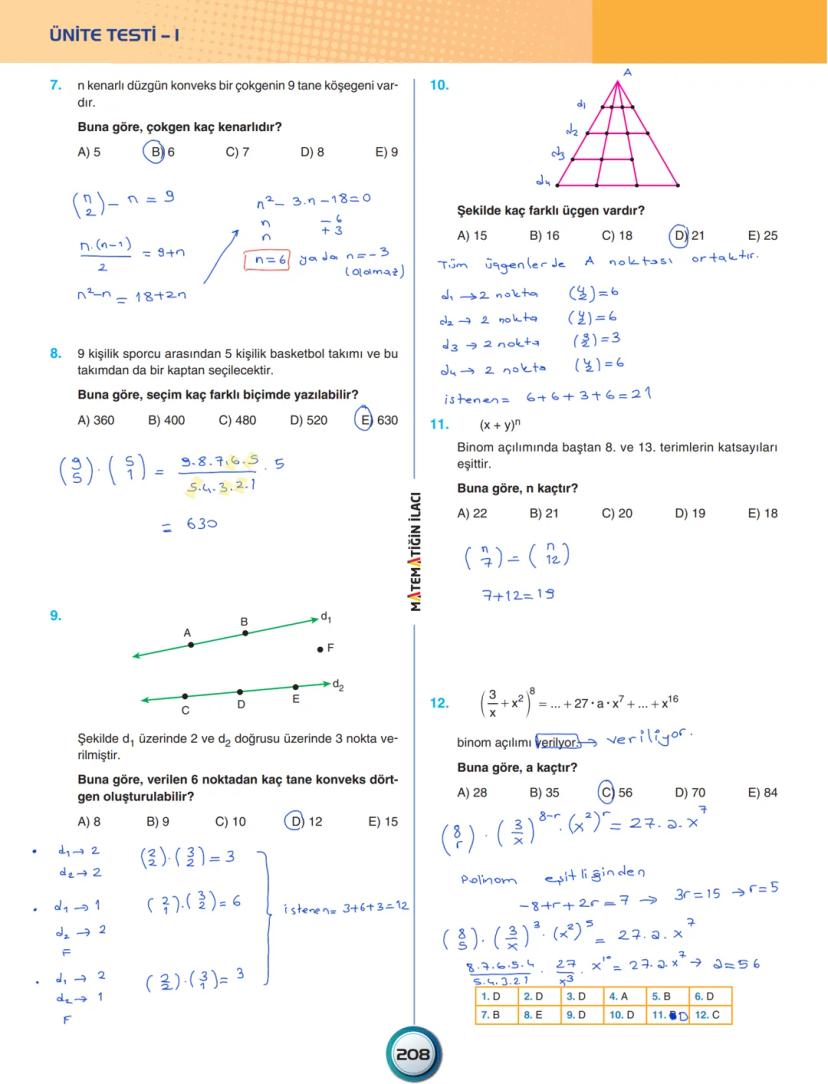 ÜNİTE TESTİ – I
7. n kenarlı düzgün konveks bir çokgenin 9 tane köşegeni var-
dır.
Buna göre, çokgen kaç kenarlıdır?
A) 5 B) 6 C) 7 D) 8 E) 9
(n 2) - n = 9
n.(n-1)/2 = 9+n
n²-n = 18+2n
n² - 3.n - 18 = 0
n -6
n +3
n=6 ya da n=-3
(olamaz)
8. 9 kişilik sporcu arasından 5 kişilik basketbol takımı ve bu
takımdan da bir kaptan seçilecektir.
Buna göre, seçim kaç farklı biçimde yazılabilir?
A) 360 B) 400 C) 480 D) 520 E) 630
(9 5) . (5 1) = 9.8.7.6.5/5.4.3.2.1 . 5
= 630
9.
A B d₁
F
C D E d₂
Şekilde d₁ üzerinde 2 ve d₂ doğrusu üzerinde 3 nokta ve-
rilmiştir.
Buna göre, verilen 6 noktadan kaç tane konveks dört-
gen oluşturulabilir?
A) 8 B) 9 C) 10 D) 12 E) 15
• d₁→2 (2 2).(3 2)=3
d₂→2
• d₁→1 (2 1).(3 2)=6
d₂→2
F
istenen= 3+6+3=12
• d₁→2 (2 2).(3 1)=3
d₂→1
F
MATEMATİĞİN İLACI
10.
A
d₁
d₂
d₃
d₄
Şekilde kaç farklı üçgen vardır?
A) 15 B) 16 C) 18 D) 21 E) 25
Tüm üçgenlerde A noktası ortaktır.
d₁→2 nokta (4 2)=6
d₂→2 nokta (4 2)=6
d₃→2 nokta (3 2)=3
d₄→2 nokta (4 2)=6
istenen= 6+6+3+6=21
11. (x + y)ⁿ
Binom açılımında baştan 8. ve 13. terimlerin katsayıları
eşittir.
Buna göre, n kaçtır?
A) 22 B) 21 C) 20 D) 19 E) 18
(n 7) = (n 12)
7+12=19
12. (3/x + x²)⁸ = ... + 27·a·x⁷ + ... + x¹⁶
binom açılımı verilyor. → veriliyor.
Buna göre, a kaçtır?
A) 28 B) 35 C) 56 D) 70 E) 84
(8 r) . (3/x)⁸⁻ʳ . (x²)ʳ = 27.a.x⁷
Polinom eşitliğinden
-8+r+2r=7 → 3r=15 → r=5
(8 5) . (3/x)³ . (x²)⁵ = 27.a.x⁷
8.7.6.5.4/5.4.3.2.1 . 27/x³ . x¹⁰ = 27.a.x⁷ → a=56
1. D 2. D 3. D 4. A 5. B 6. D
7. B 8. E 9. D 10. D 11. D 12. C
208